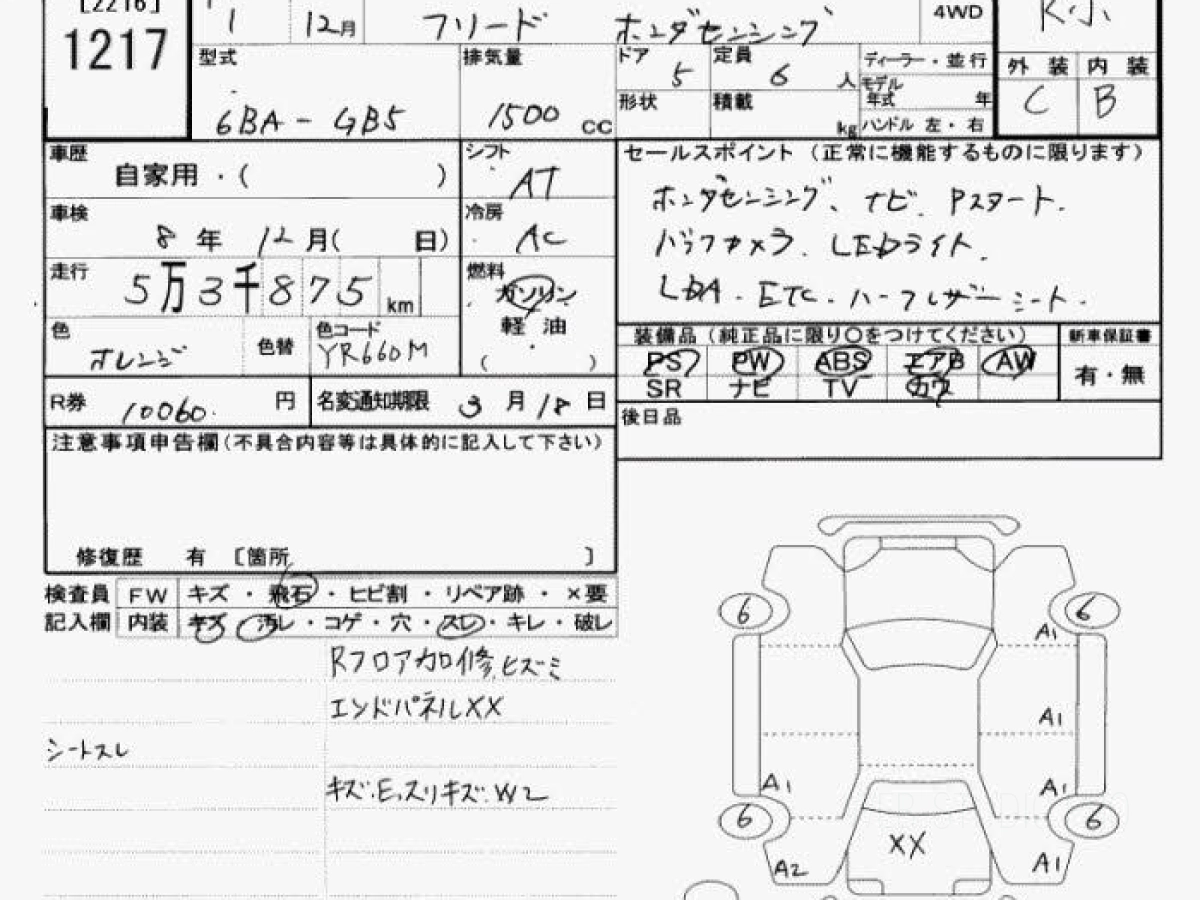 [2216]
1217
1 12月 フリード ホンダセンシング 4WD R小
型式 6BA-GB5
排気量 1500 cc
ドア 5
定員 6 人
ディーラー・並行
モデル年式 年
形状
積載 kg
ハンドル 左・右
外装 内装
C B
車歴 自家用・( )
シフト AT
車検 8年 12月( 日)
冷房 AC
走行 5万3千875km
燃料 ガソリン
軽油
( )
色 オレンジ 色替
色コード YR660M
R券 10060. 円
名変通知期限 3月18日
セールスポイント(正常に機能するものに限ります)
ホンダセンシング、ナビ、Pスタート.
バックカメラ. LEDライト.
LDA. ETC. ハーフレザーシート.
装備品(純正品に限り○をつけてください) 新車保証書
PS PW ABS エアB AW 有・無
SR ナビ TV カワ
後日品
注意事項申告欄(不具合内容等は具体的に記入して下さい)
修復歴 有 [箇所 ]
検査員 FW キズ・飛石・ヒビ割・リペア跡・×要
記入欄 内装 キズ・汚レ・コゲ・穴・スレ・キレ・破レ
Rフロア加修,ヒズミ
エンドパネルXX
シートスレ
キズ.E.スリキズ.W2
6 6
A1
A1
A1 A1
6 6
XX
A2 A1